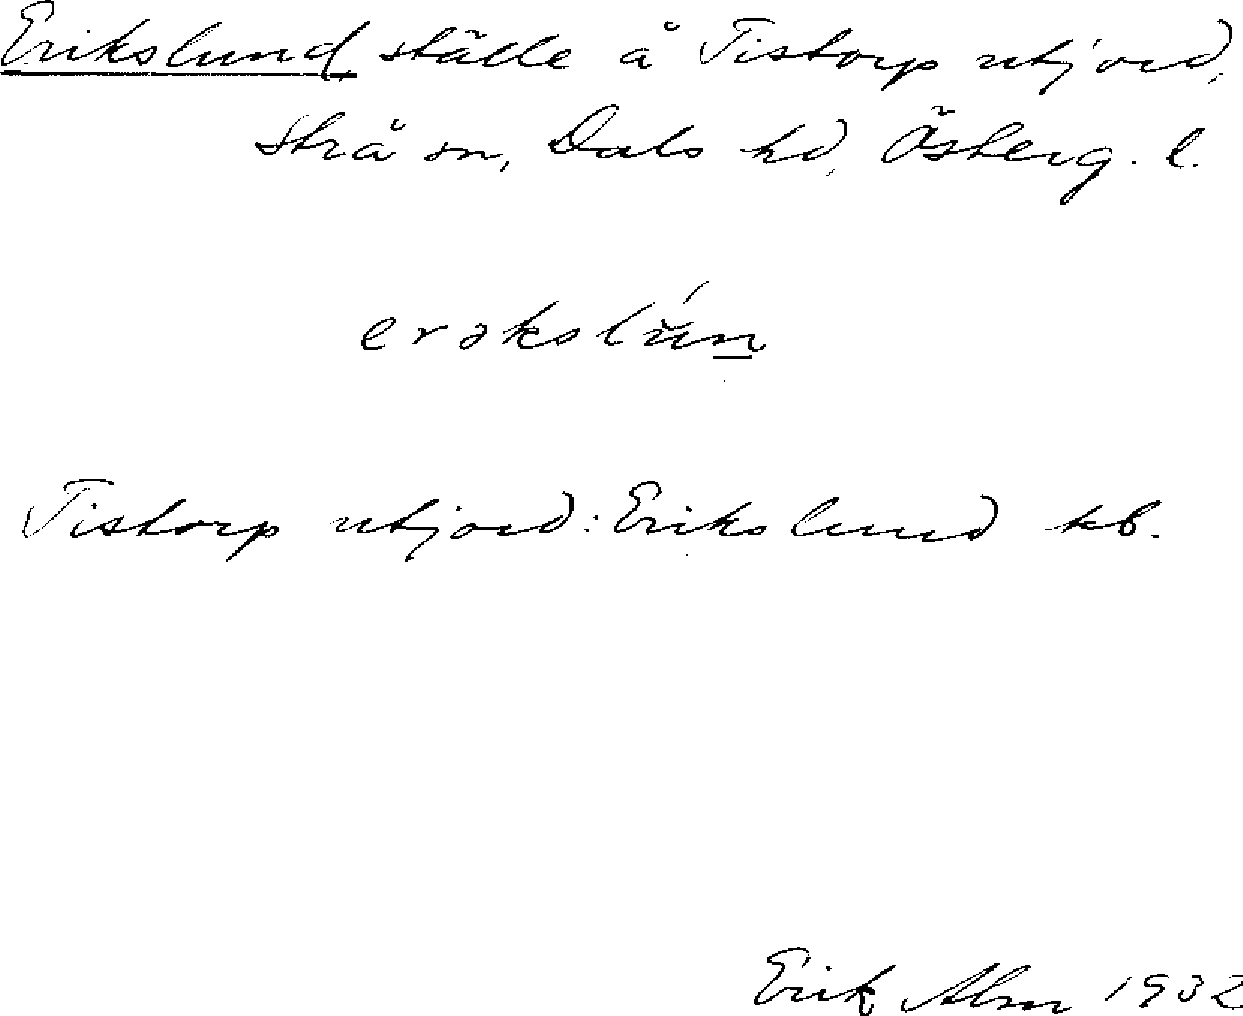 Erikslund, ställe å Tistorp utjord,
Strå sn, Dals hd, Österg. l.
erəkslún
Tistorp utjord: Erikslund kb.
Erik Alm 1932